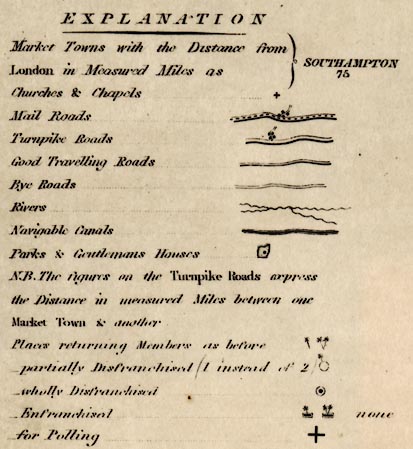 EXPLANATION
Market Towns with the Distance from
London in Measured Miles as
SOUTHAMPTON
75
Churches & Chapels
Mail Roads
Turnpike Roads
Good Travelling Roads
Bye Roads
Rivers
Navigable Canals
Parks & Gentlemans Houses
N.B. The figures on the Turnpike Roads express
the Distance in measured Miles between one
Market Town & another
Places returning Members as before
partially Disfranchised (1 instead of 2)
wholly Disfranchised
Enfranchised none
for Polling